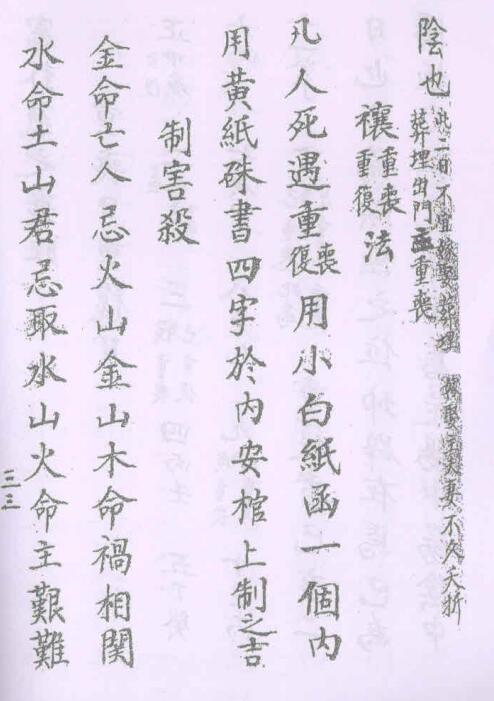 陰也 此二日不宜嫁娶葬埋 嫁娶主夫妻不久夭折
葬埋出門主重喪
禳重喪重復法
凡人死遇重喪復用小白紙函一個內
用黃紙硃書四字於內安棺上制之吉
制害殺
金命亡人忌火山金山木命禍相関
水命土山君忌取水山火命主艱難
三三